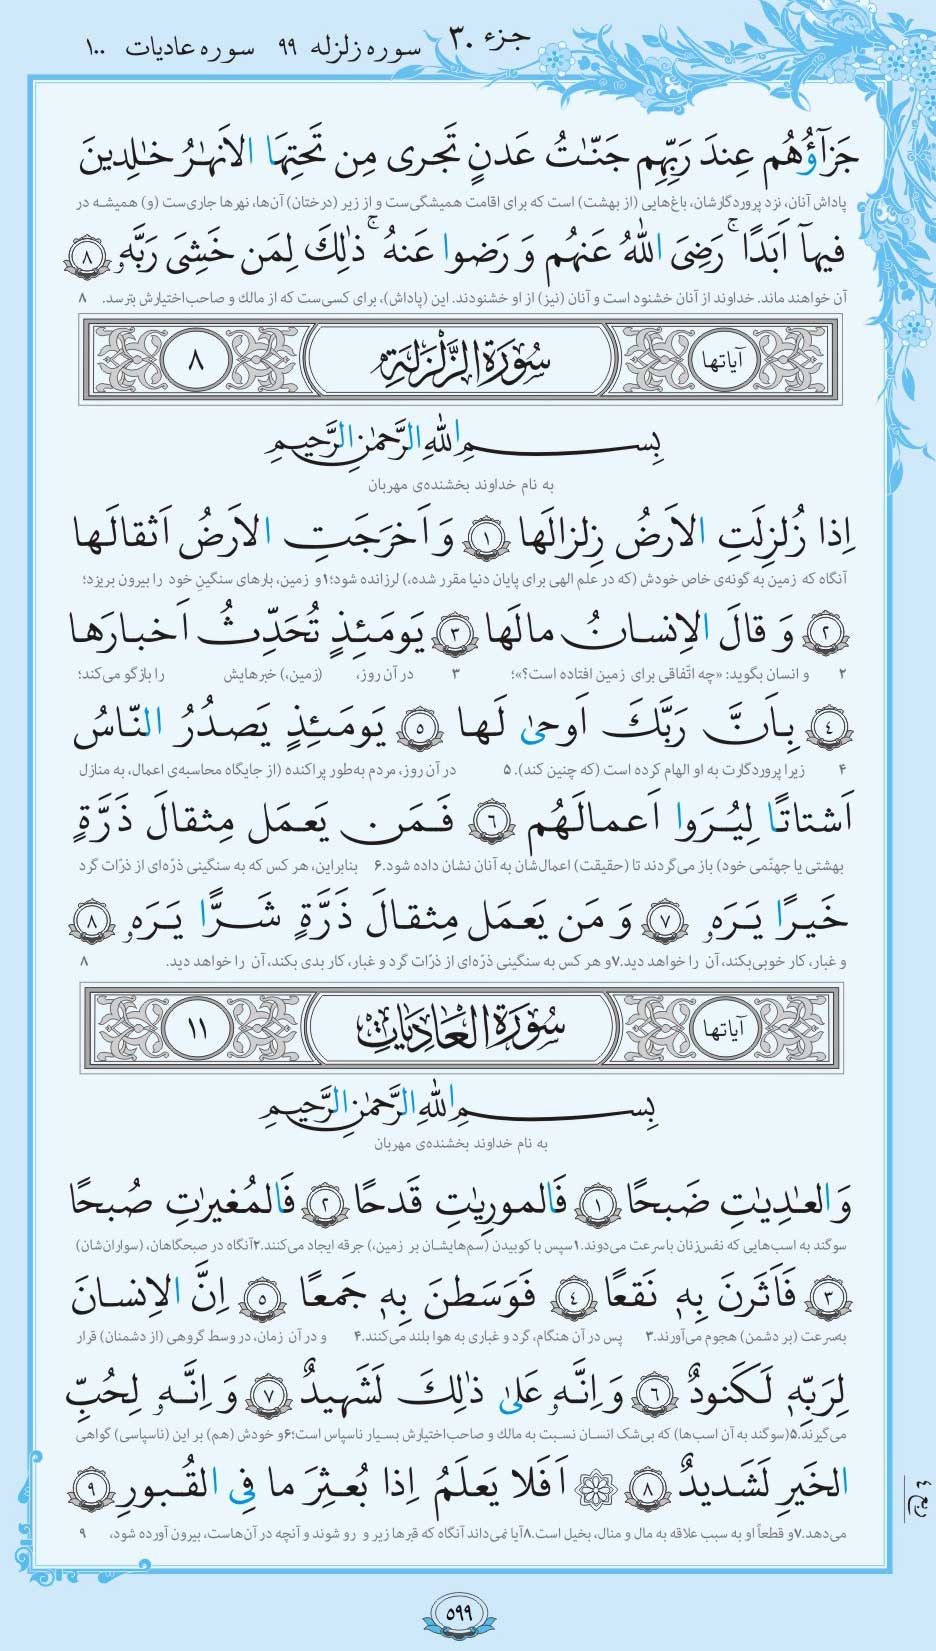 جزء ۳۰ سوره زلزله ۹۹ سوره عادیات ۱۰۰
جَزآؤُهُم عِندَ رَبِّهِم جَنّـٰتُ عَدنٍ تَجری مِن تَحتِهَا الاَنهـٰرُ خـٰلِدینَ
پاداش آنان، نزد پروردگارشان، باغ‌هایی (از بهشت) است که برای اقامت همیشگی‌ست و از زیر (درختان) آن‌ها، نهرها جاری‌ست (و) همیشه در
فیهآ اَبَدًا ۚ رَضِیَ اللّٰهُ عَنهُم وَ رَضوا عَنهُ ۚ ذٰلِكَ لِمَن خَشِیَ رَبَّه ۝٨
آن خواهند ماند. خداوند از آنان خشنود است و آنان (نیز) از او خشنودند. این (پاداش)، برای کسی‌ست که از مالك و صاحب‌اختیارش بترسد. ۸
آیاتها سُورَةُ الزَّلْزَلَةِ ٨
بِسـمِ اللّٰهِ الرَّحمٰنِ الرَّحیمِ
به نام خداوند بخشنده‌ی مهربان
اِذا زُلزِلَتِ الاَرضُ زِلزالَها ۝١ وَ اَخرَجَتِ الاَرضُ اَثقالَـها
آنگاه که زمین به گونه‌ی خاص خودش (که در علم الهی برای پایان دنیا مقرر شده،) لرزانده شود؛۱ و زمین، بارهای سنگینِ خود را بیرون بریزد؛
۝٢ وَ قالَ الاِنسـانُ مالَها ۝٣ یَومَـئِـذٍ تُحَدِّثُ اَخبـارَها
۲ و انسان بگوید: «چه اتّفاقی برای زمین افتاده است؟»؛ ۳ در آن روز، (زمین،) خبرهایش را بازگو می‌کند؛
۝٤ بِـاَنَّ رَبَّكَ اَوحیٰ لَـها ۝٥ یَومَـئِـذٍ یَصدُرُ النّاسُ
۴ زیرا پروردگارت به او الهام کرده است (که چنین کند). ۵ در آن روز، مردم به‌طور پراکنده (از جایگاه محاسبه‌ی اعمال، به منازل
اَشتاتًـا لِیُـرَوا اَعمـالَهُم ۝٦ فَـمَن یَعمَل مِثقالَ ذَرَّةٍ
بهشتی یا جهنّمی خود) باز می‌گردند تا (حقیقت) اعمال‌شان به آنان نشان داده شود.۶ بنابراین، هر کس که به سنگینی ذرّه‌ای از ذرّات گرد
خَیـرًا یَـرَه ۝٧ وَ مَن یَعمَل مِثقالَ ذَرَّةٍ شَـرًّا یَـرَه ۝٨
و غبار، کار خوبی‌بکند، آن را خواهد دید.۷و هر کس به سنگینی ذرّه‌ای از ذرّات گرد و غبار، کار بدی بکند، آن را خواهد دید. ۸
آیاتها سُورَةُ الْعَادِیَاتِ ١١
بِسـمِ اللّٰهِ الرَّحمٰنِ الرَّحیمِ
به نام خداوند بخشنده‌ی مهربان
وَ العـٰدِیـٰتِ ضَبحًا ۝١ فَالموریـٰتِ قَدحًا ۝٢ فَالمُغیرٰتِ صُبحًا
سوگند به اسب‌هایی که نفس‌زنان باسرعت می‌دوند.۱سپس با کوبیدن (سم‌هایشان بر زمین،) جرقه ایجاد می‌کنند.۲آنگاه در صبحگاهان، (سواران‌شان)
۝٣ فَاَثَرنَ بِه نَقعًا ۝٤ فَوَسَطنَ بِه جَمعًا ۝٥ اِنَّ الاِنسـانَ
به‌سرعت (بر دشمن) هجوم می‌آورند.۳ پس در آن هنگام، گرد و غباری به هوا بلند می‌کنند.۴ و در آن زمان، در وسط گروهی (از دشمنان) قرار
لِرَبِّه لَـكَنودٌ ۝٦ وَ اِنَّه عَلیٰ ذٰلِكَ لَشَهیدٌ ۝٧ وَ اِنَّـه لِحُبِّ
می‌گیرند.۵(سوگند به آن اسب‌ها) که بی‌شک انسان نسبت به مالك و صاحب‌اختیارش بسیار ناسپاس است؛۶و خودش (هم) بر این (ناسپاسی) گواهی
الخَیرِ لَشَدیدٌ ۝٨ ۞ اَفَلا یَعلَمُ اِذا بُعثِرَ ما فِی القُبورِ ۝٩
می‌دهد.۷و قطعاً او به سبب علاقه به مال و منال، بخیل است.۸آیا نمی‌داند آنگاه که قبرها زیر و رو شوند و آنچه در آن‌هاست، بیرون آورده شود، ۹
ربع ٤
۵۹۹